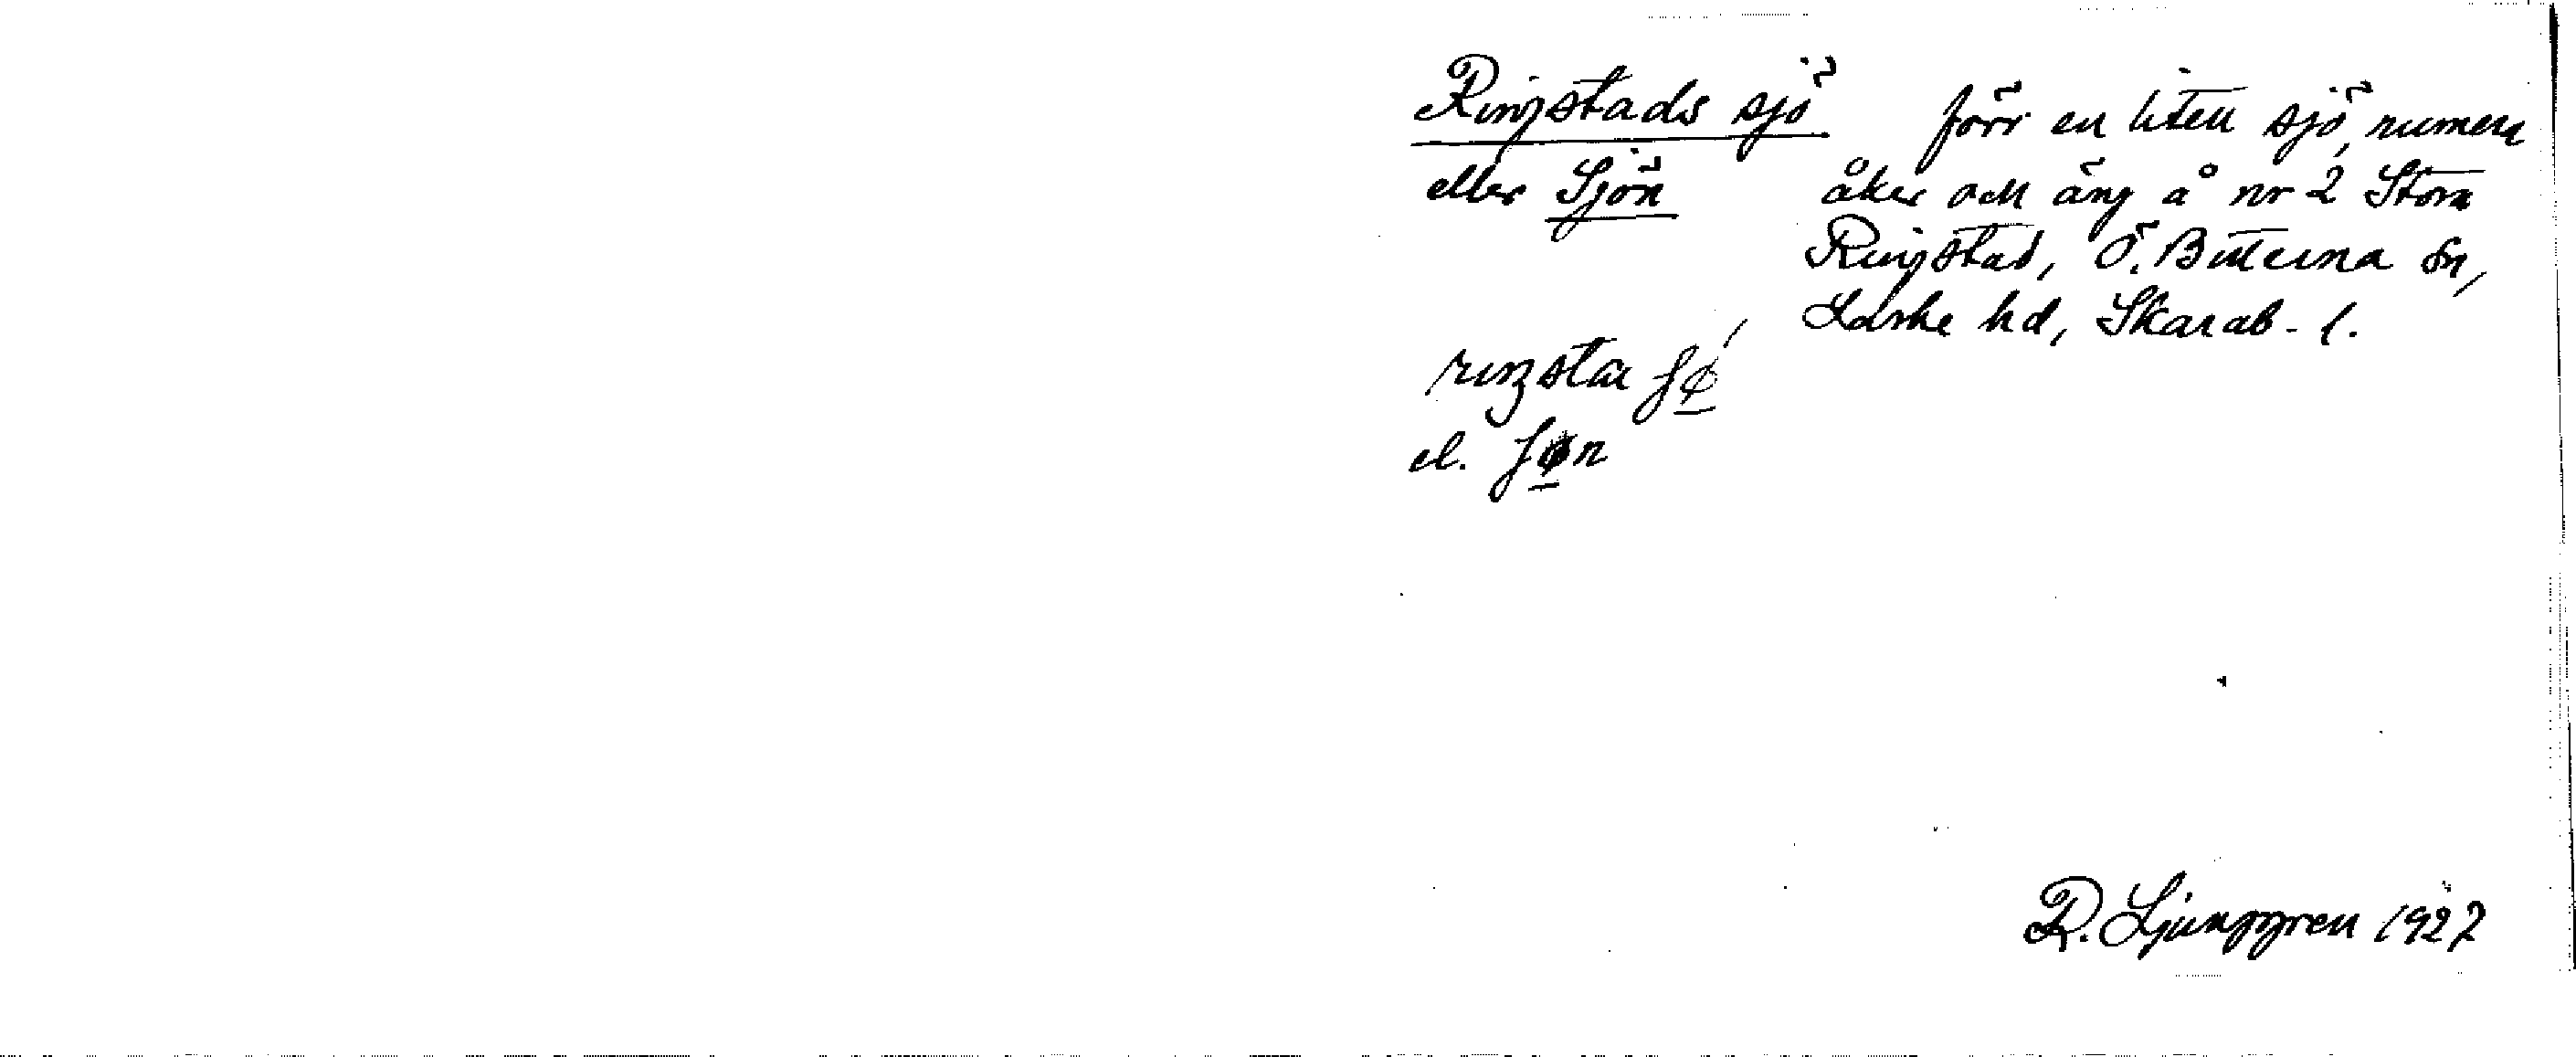 Ringstads sjö
eller Sjön
förr en liten sjö, numera
åker och äng å nr 2 Stora
Ringstad, Ö. Bitterna sn,
Laske hd, Skarab. l.
riŋsta ʃø̱
el. ʃø̱n
R. Ljunggren 1927